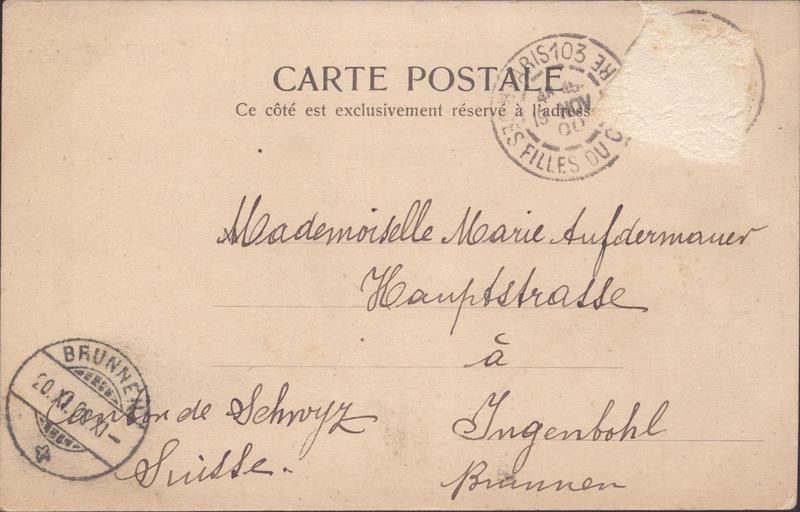 CARTE POSTALE
Ce côté est exclusivement réservé à l'adresse
PARIS 103
NOV
00
FILLES DU
Mademoiselle Marie Aufdermauer
Hauptstrasse
à
Ingenbohl
Brunnen
Canton de Schwyz
Suisse.
BRUNNEN
20.XI.00 XI-